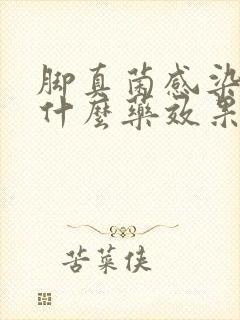 脚真菌感染
什麼藥效果
苦菜侠